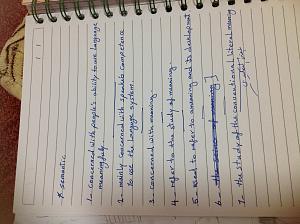 * semantic
1- concerned with people's ability to use language
meaningfully.
2- mainly concerned with speaker's competence
to use the language system.
3- concerned with meaning.
4- refer to the study of meaning
5- used to refer to a meaning and its development
6- the science of meaning ]
7- the study of the conventional literal meaning